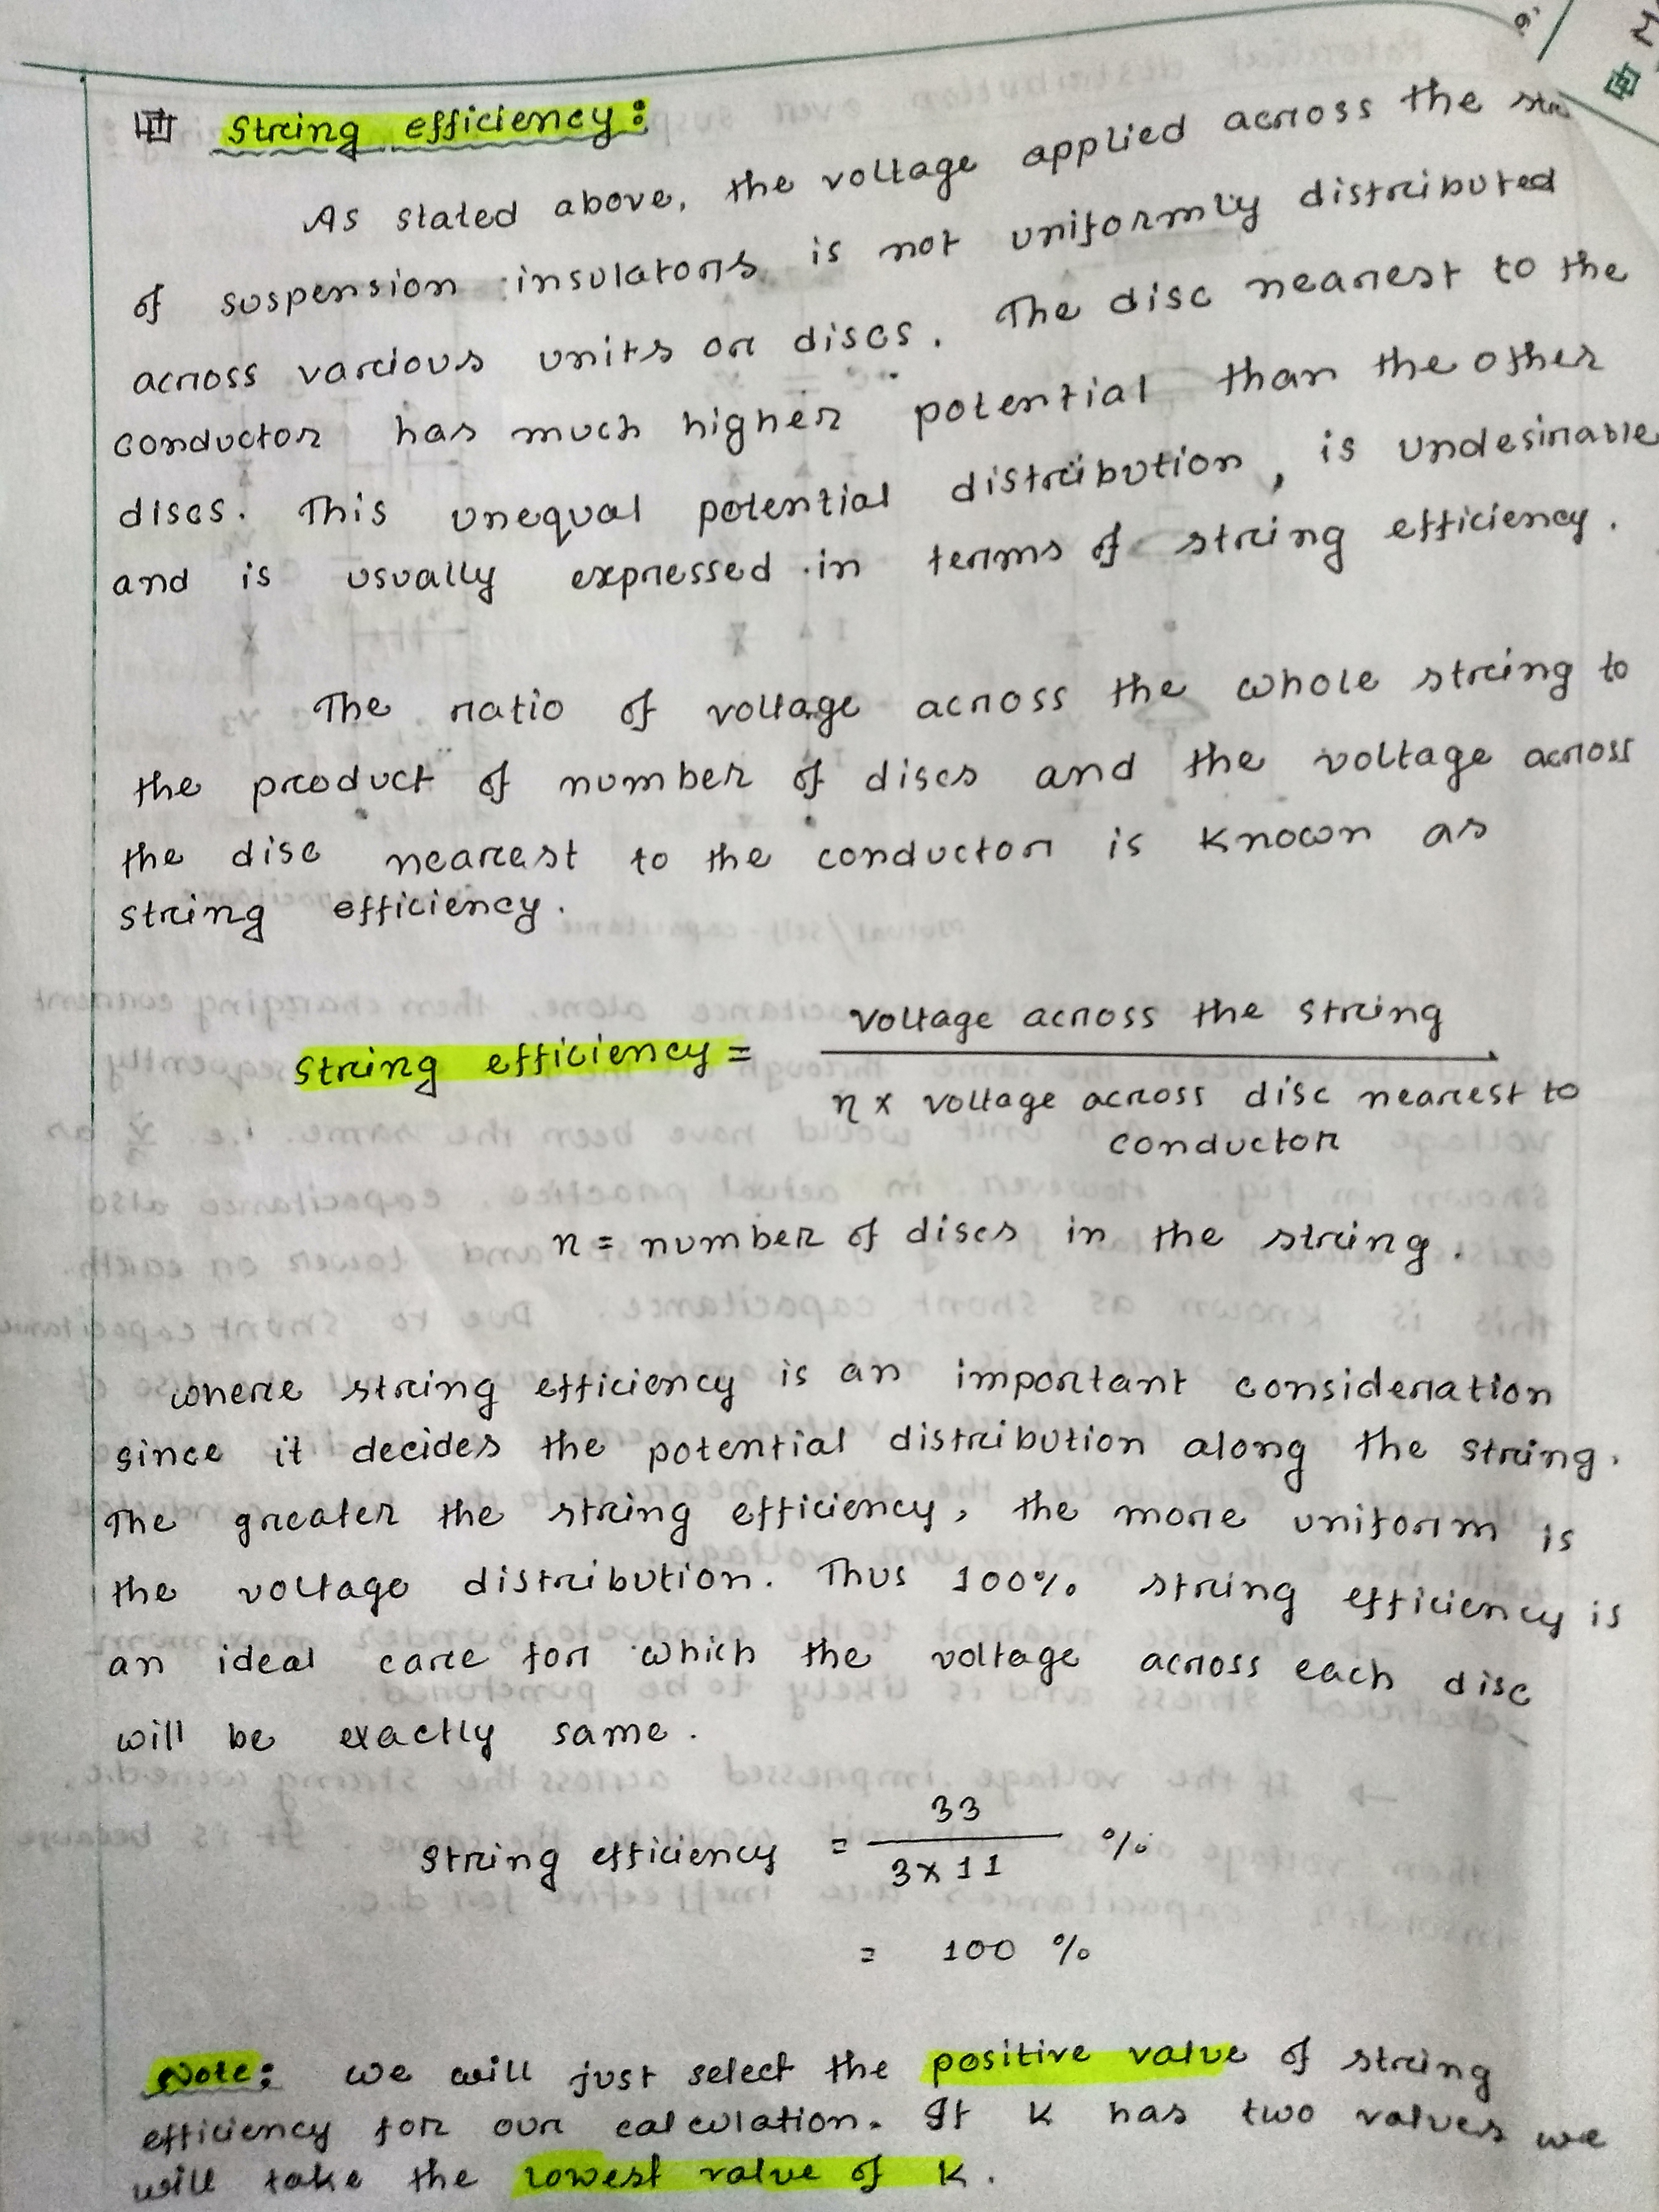 String efficiency:
As stated above, the voltage applied across the
of suspension insulators is not uniformly distributed
across various units or discs. The disc nearest to the
conductor has much higher potential than the other
discs. This unequal potential distribution, is undesirable
and is usually expressed in terms of string efficiency.
The ratio of voltage across the whole string to
the product of number of discs and the voltage across
the disc nearest to the conductor is known as
string efficiency.
String efficiency = voltage across the string
n x voltage across disc nearest to
conductor
n = number of discs in the string.
where string efficiency is an important consideration
since it decides the potential distribution along the string.
The greater the string efficiency, the more uniform is
the voltage distribution. Thus 100% string efficiency is
an ideal care for which the voltage across each disc
will be exactly same.
String efficiency = 33 %
3 x 11
= 100 %
Note: we will just select the positive value of string
efficiency for our calculation. If K has two values we
will take the lowest value of K.